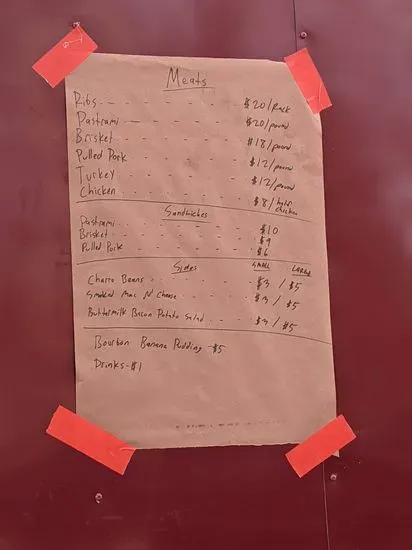 Meats
Ribs - - - - - - $20/Rack
Pastrami - - - - - $20/pound
Brisket - - - - - $18/pound
Pulled Pork - - - - $12/pound
Turkey - - - - - $12/pound
Chicken - - - - - $8/half chicken
Sandwiches
Pastrami - - - - - $10
Brisket - - - - - $9
Pulled Pork - - - - $6
Sides SMALL LARGE
Charro Beans - - - - $3 / $5
Smoked Mac N' Cheese - - - $3 / $5
Buttermilk Bacon Potato Salad - - $3 / $5
Bourbon Banana Pudding - $5
Drinks - $1